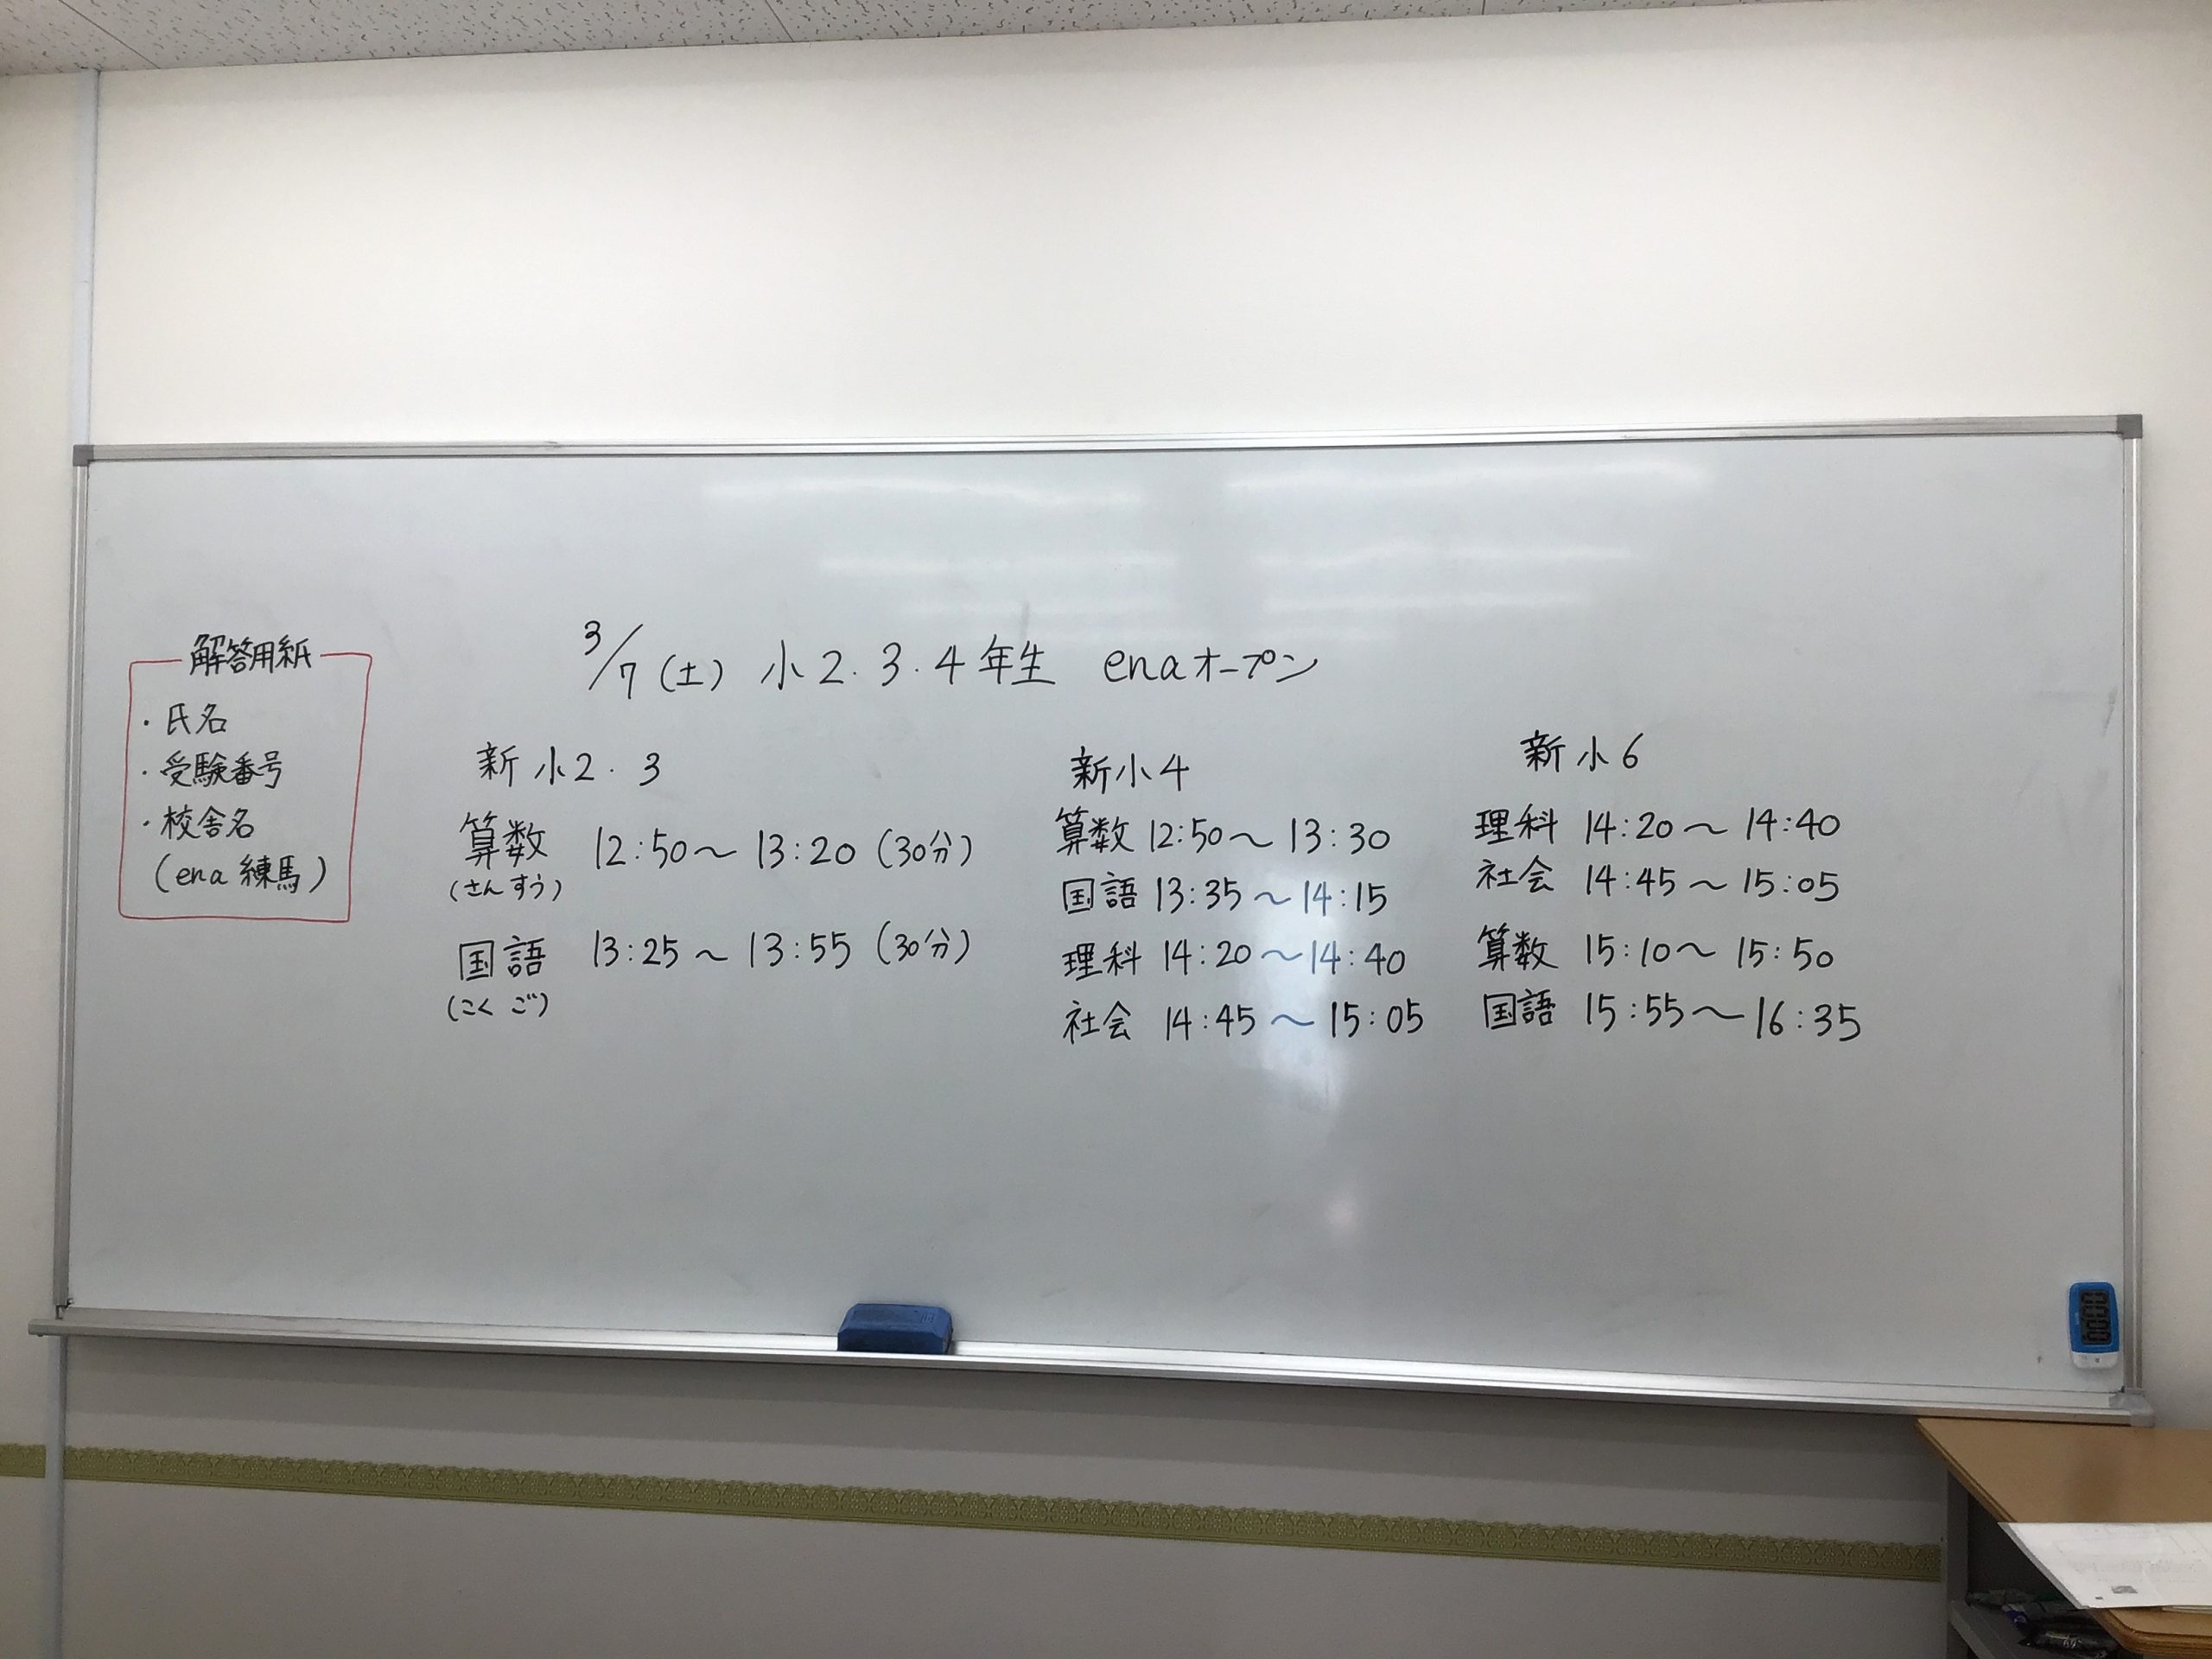 解答用紙
・氏名
・受験番号
・校舎名
(ena 練馬)
3/7(土) 小2.3.4年生 enaオープン
新小2.3
算数 12:50〜13:20(30分)
(さんすう)
国語 13:25〜13:55(30分)
(こくご)
新小4
算数 12:50〜13:30
国語 13:35〜14:15
理科 14:20〜14:40
社会 14:45〜15:05
新小6
理科 14:20〜14:40
社会 14:45〜15:05
算数 15:10〜15:50
国語 15:55〜16:35